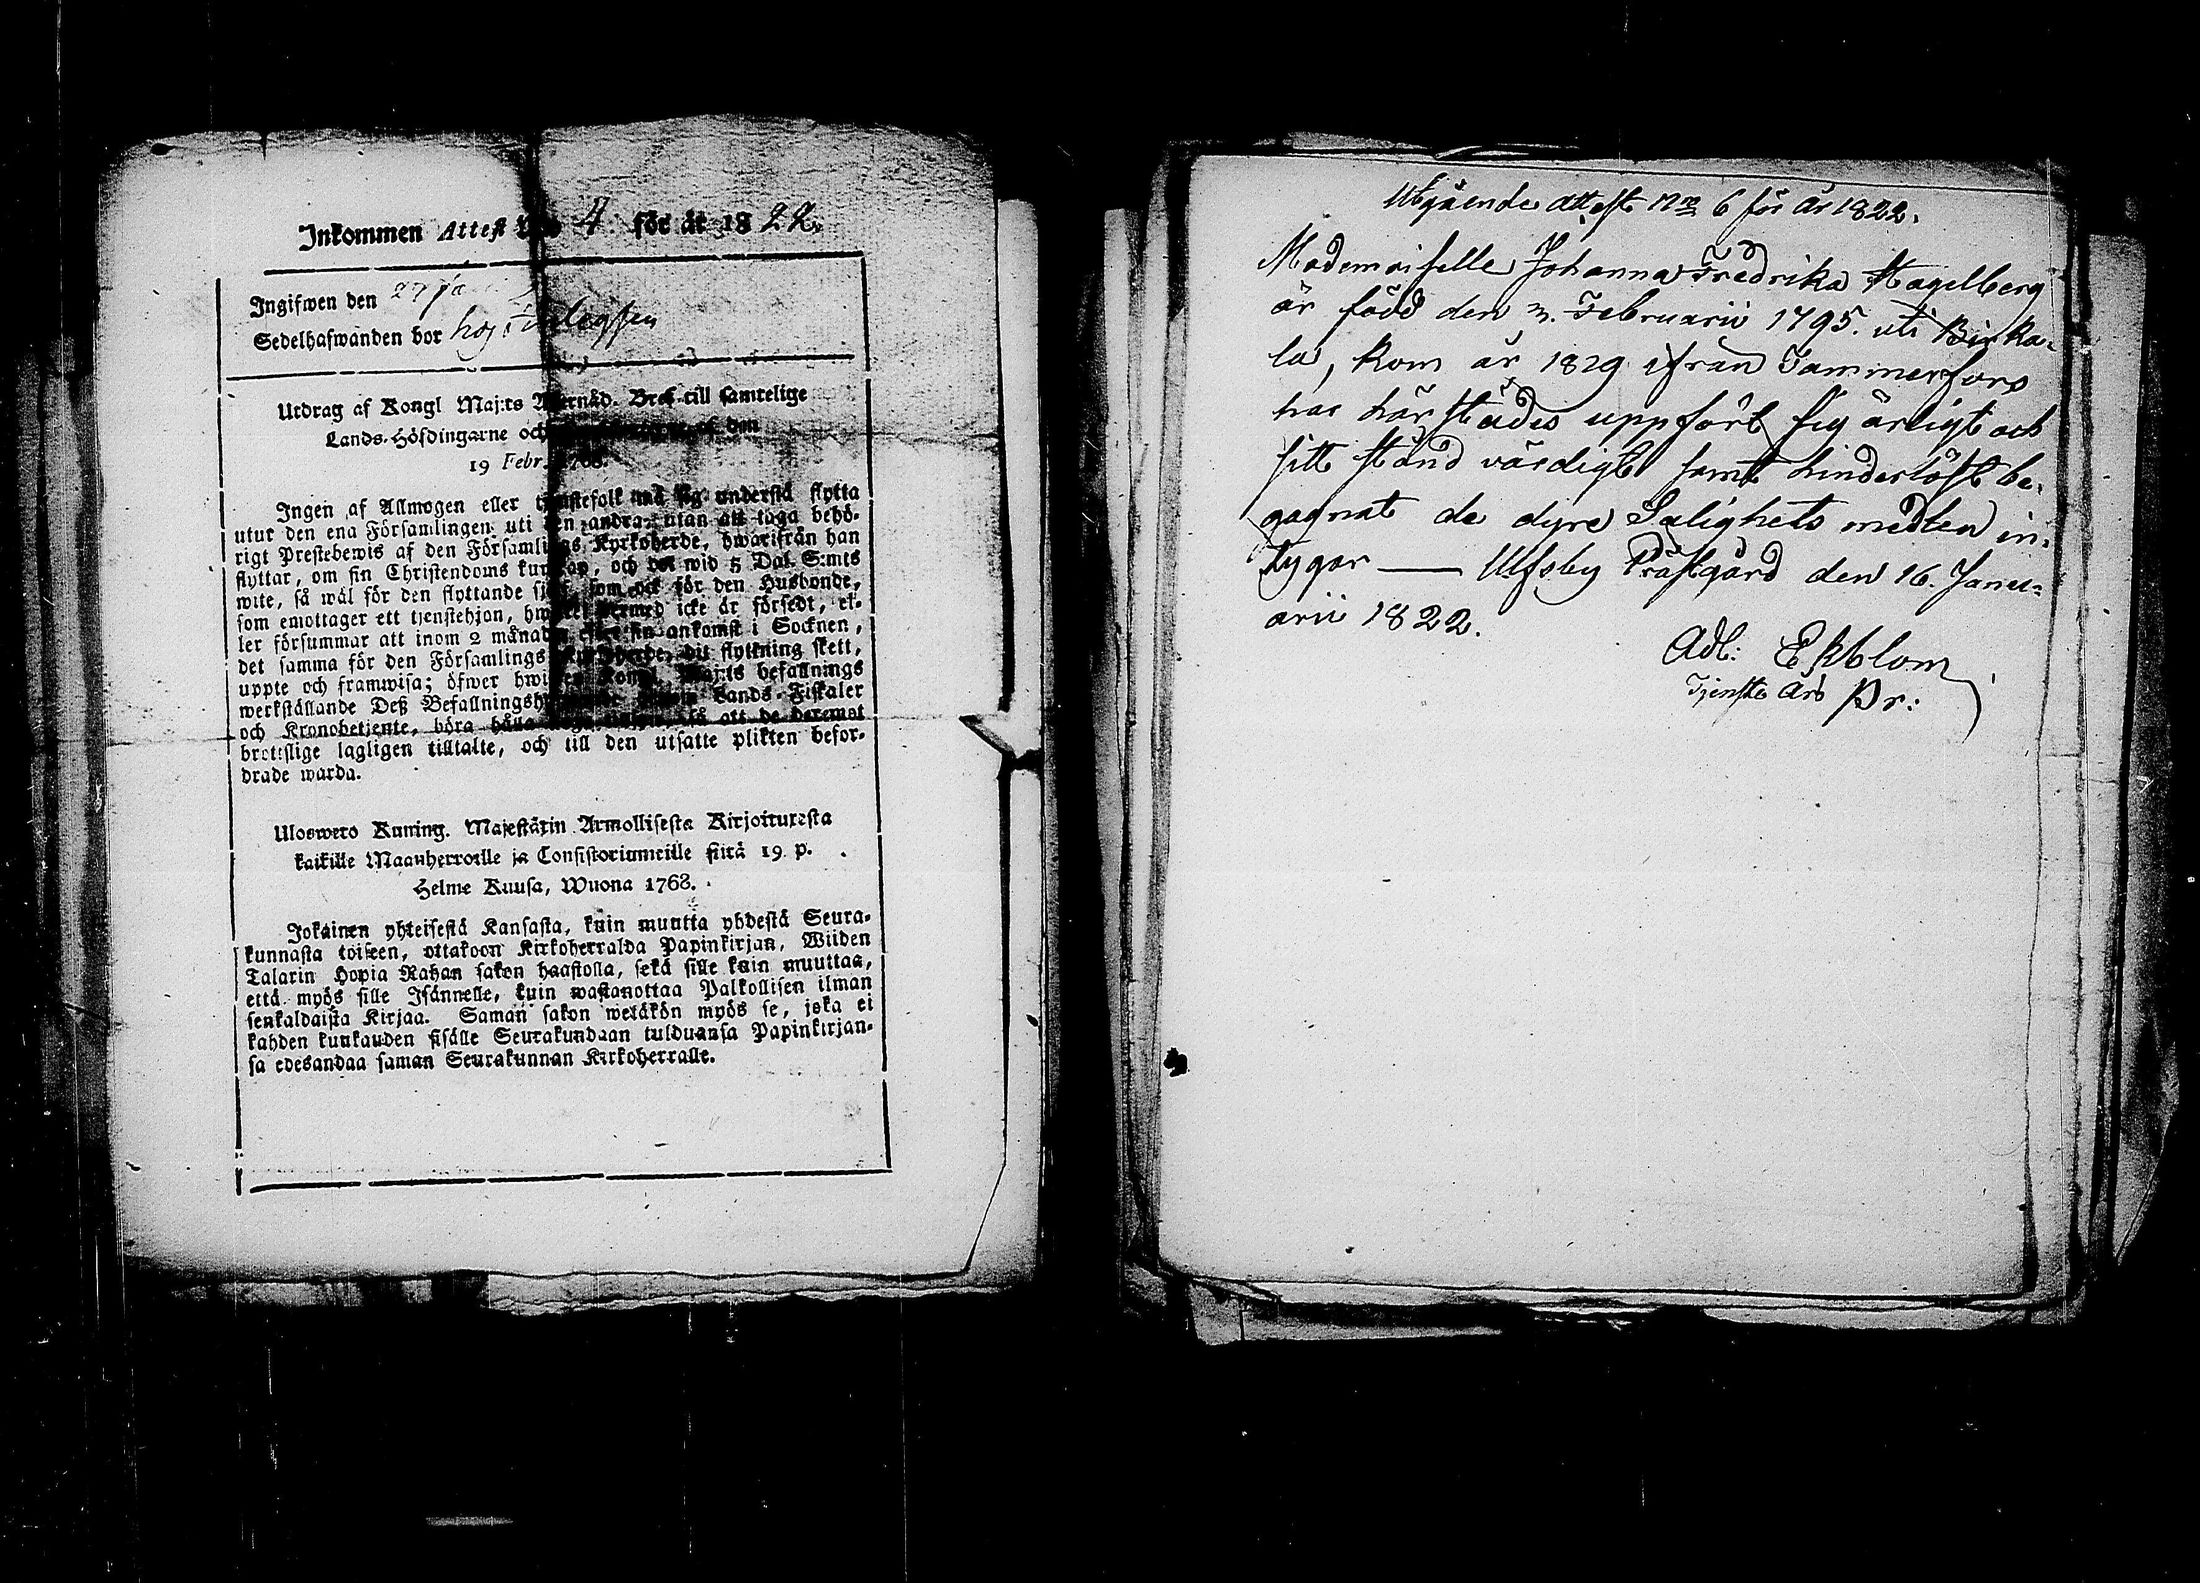 Inkommen Attest N:o 4. för år 1822.
Ingifwen den 27 Jan
Sedelhafwanden bor hos
Utdrag af Kongl Maj:ts Allernåd. Bref till samtelige
Lands-Höfdingarne och den
19 Febr. 1768.
Ingen af Allmogen eller tjenstefolk må sig understå flytta
utur den ena Församlingen uti den andra, utan att taga behö-
rigt Prestebewis af den Församlings Kyrkoherde, hwarifrån han
flyttar, om sin Christendoms kunskap, och det wid 5 Dal. S:mts
wite, så wäl för den flyttande sjelf, som ock för den Husbonde,
som emottager ett tjenstehjon, hwilket dermed icke är försedt, el-
ler försummar att inom 2 månader efter sin ankomst i Socknen,
det samma för den Församlings Kyrkoherde, dit flyttning skett,
uppte och framwisa; öfwer hwilken Kongl. Maj:ts befallnings
werkställande Deß Befallningshafwande Lands-Fiskaler
och Kronobetjente, böra hålla så att de deremot
brottslige lagligen tilltalte, och till den utsatte plikten befor-
drade warda.
Ulosweto Kuning. Majestätin Armollisesta Kirjoituxesta
kaikille Maanherroille ja Consistoriumeille siitä 19 p.
Helme Kuusa, Wuona 1768.
Jokainen yhteisestä Kansasta, kuin muutta yhdestä Seura-
kunnasta toiseen, ottakoon Kirkoherralda Papinkirjan, Wiiden
Talarin Hopia Rahan sakon haastolla, sekä sille kuin muuttaa,
että myös sille Isännelle, kuin wastanottaa Palkollisen ilman
senkaldaista Kirjaa. Saman sakon wetäkön myös se, joka ei
kahden kuukauden sisälle Seurakundaan tulduansa Papinkirjan-
sa edesandaa saman Seurakunnan Kirkoherralle.
Utgående attest N:o 6 för år 1822.
Mademoiselle Johanna Fredrika Hagelberg
är född den 3. Februarii 1795. uti Birka-
la, kom år 1819 ifrån Tammerfors
har härstädes uppfört sig ärligt och
sitt stånd värdigt samt hinderlöst be-
gagnat de dyre Salighets medlen in-
tygar — Ulfsby Prästgård den 16. Janu-
arii 1822.
Adl: Ekblom
Tjenste Pr: